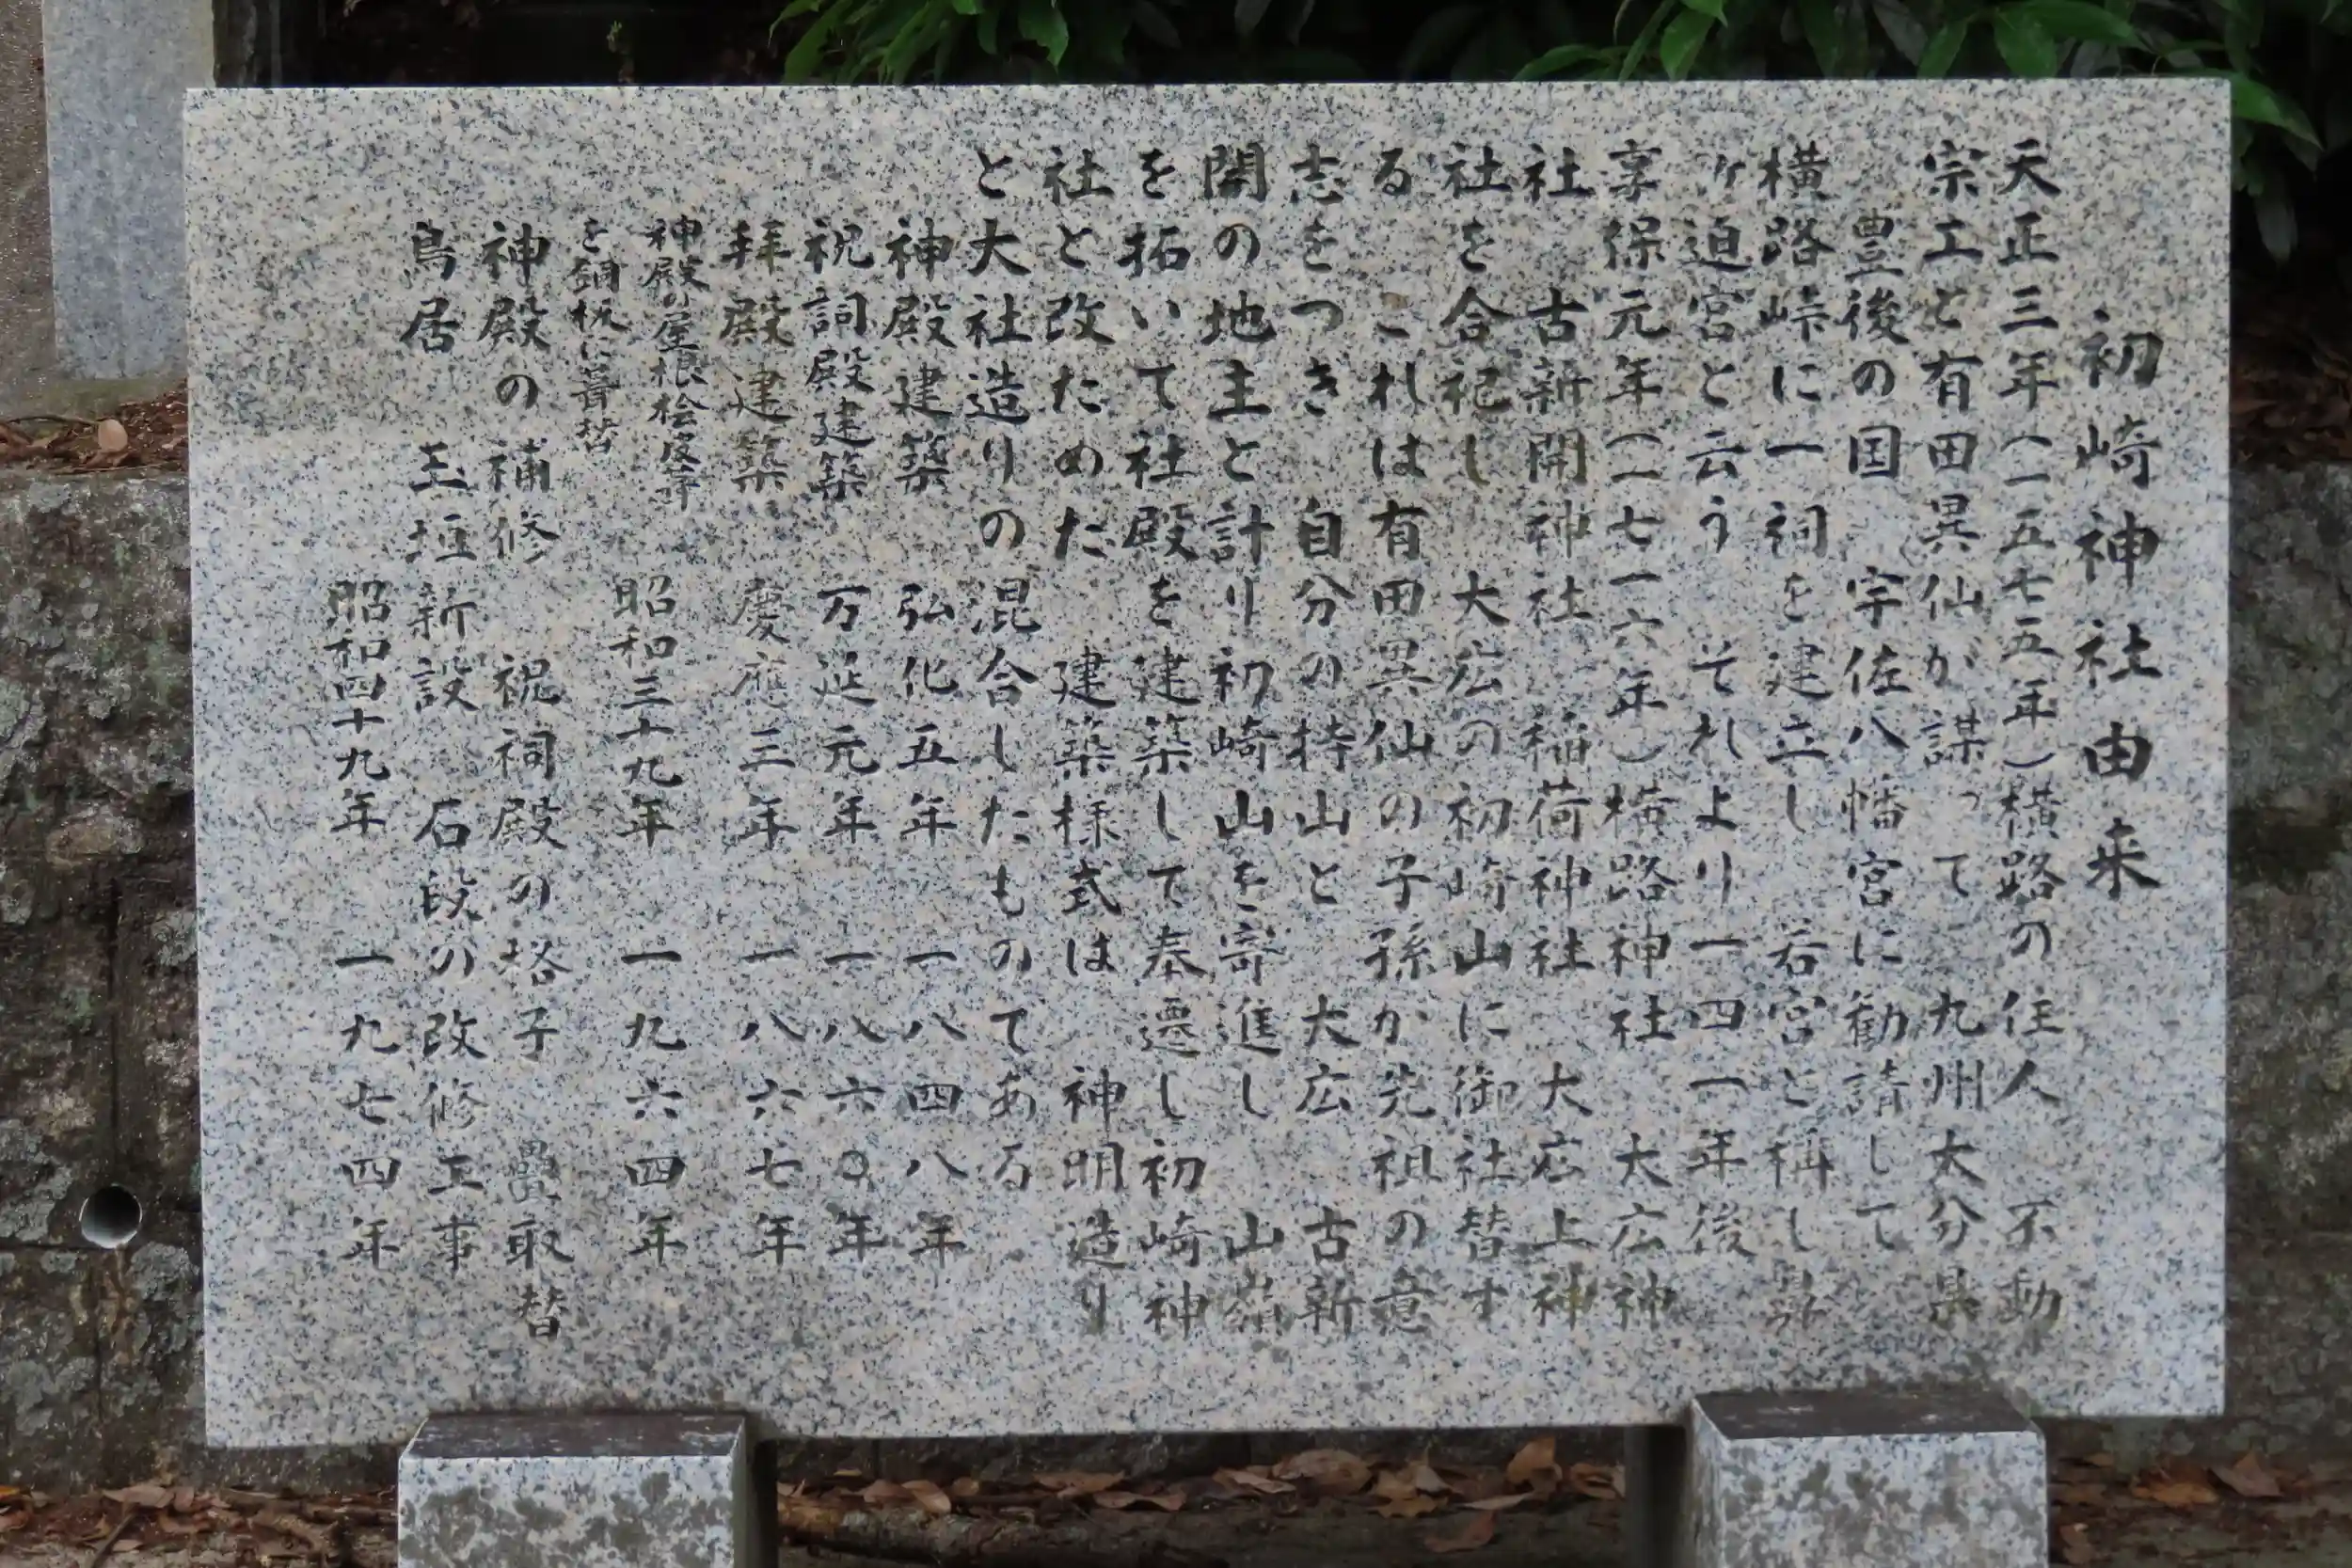 初崎神社由来
天正三年(一五七五年)横路の住人 不動
宗工と有田異仙が謀って 九州大分県
豊後の国 宇佐八幡宮に勧請して
横路峠に一祠を建立し 若宮と称し
ヶ迫宮と云う それより一四一年後
享保元年(一七一六年)横路神社 大広神
社 古新開神社 稲荷神社 大広上神
社を合祀し 大広の初崎山に御社替す
る これは有田異仙の子孫か先祖の意
志をつぎ 自分の持山と 大広 古新
開の地主と計り初崎山を寄進し 山嶺
を拓いて社殿を建築して奉遷し初崎神
社と改ためた 建築様式は 神明造り
と大社造りの混合したものてある
神殿建築 弘化五年 一八四八年
祝詞殿建築 万延元年 一八六〇年
拝殿建築 慶應三年 一八六七年
神殿の屋根桧皮葺
を銅板に葺替 昭和三十九年 一九六四年
神殿の補修 祝祠殿の塔子 畳取替
鳥居 玉垣新設 石段の改修工事
昭和四十九年 一九七四年